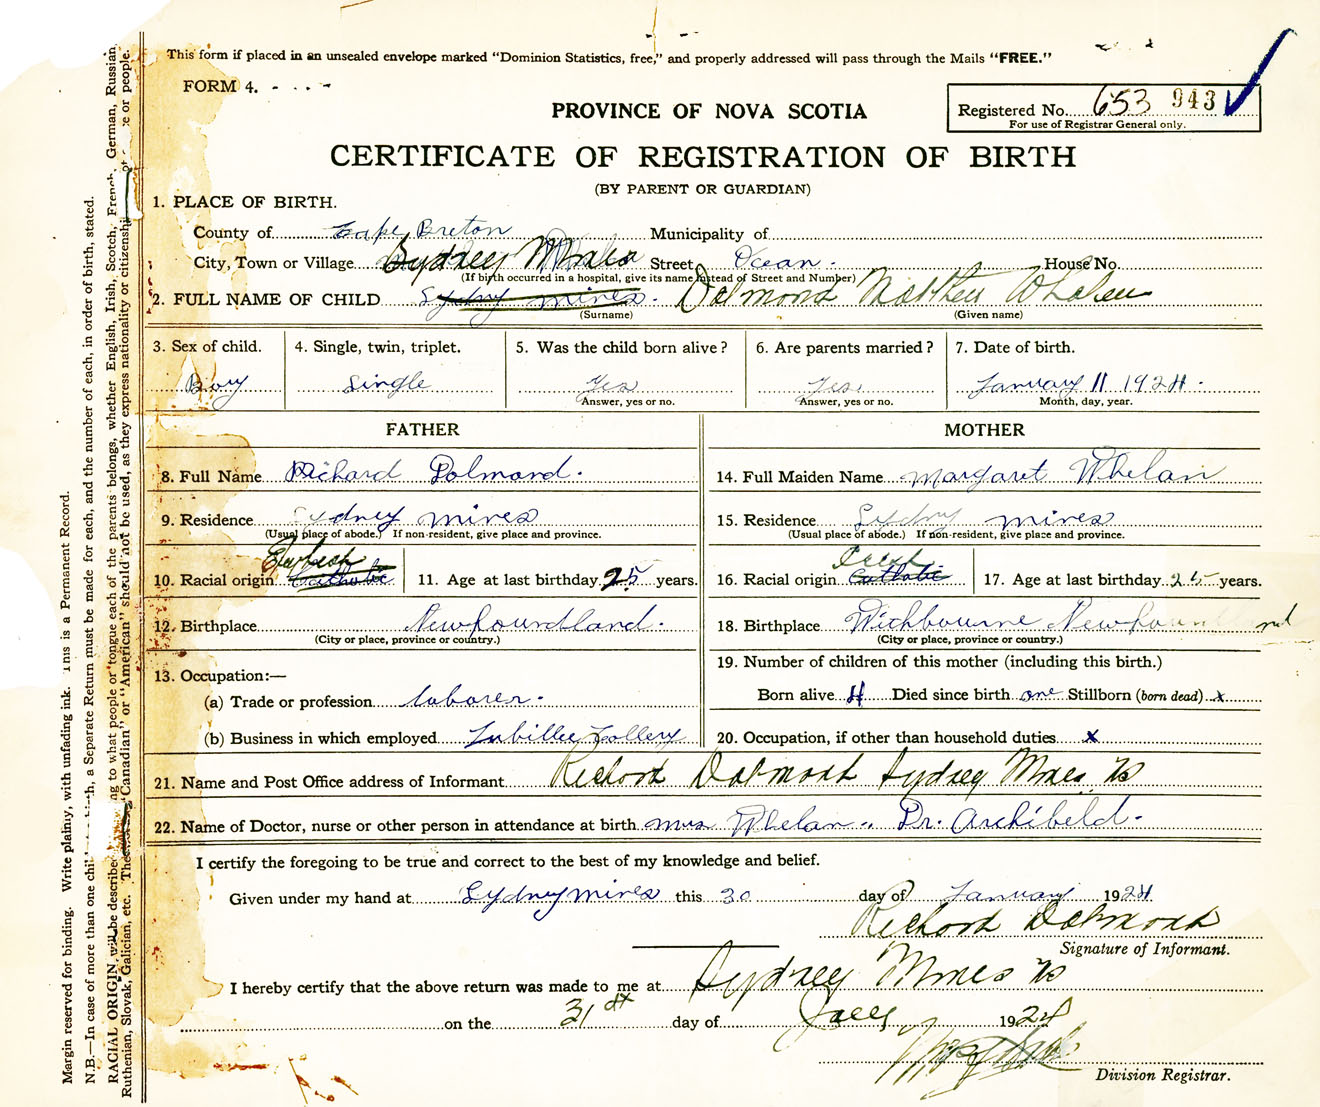 This form if placed in an unsealed envelope marked "Dominion Statistics, free," and properly addressed will pass through the Mails "FREE."
FORM 4.
PROVINCE OF NOVA SCOTIA
Registered No. 653 943
For use of Registrar General only.
CERTIFICATE OF REGISTRATION OF BIRTH
(BY PARENT OR GUARDIAN)
1. PLACE OF BIRTH.
County of Cape Breton Municipality of
City, Town or Village Sydney Mines Street Ocean. House No.
(If birth occurred in a hospital, give its name instead of Street and Number)
2. FULL NAME OF CHILD Sydny mines. Dolmond Matthew Whalen
(Surname) (Given name)
3. Sex of child. 4. Single, twin, triplet. 5. Was the child born alive? 6. Are parents married? 7. Date of birth.
Boy Single Yes Yes. January 11 1924.
Answer, yes or no. Answer, yes or no. Month, day, year.
FATHER MOTHER
8. Full Name Richard Dolmond. 14. Full Maiden Name Margaret Whelan
9. Residence Sydney mines 15. Residence Sydny mines
(Usual place of abode.) If non-resident, give place and province. (Usual place of abode.) If non-resident, give place and province.
10. Racial origin Catholic 11. Age at last birthday 25 years. 16. Racial origin Irish Catholic 17. Age at last birthday 25 years.
12. Birthplace Newfoundland. 18. Birthplace Withbourne Newfoundland
(City or place, province or country.) (City or place, province or country.)
13. Occupation:— 19. Number of children of this mother (including this birth.)
(a) Trade or profession laborer. Born alive 4 Died since birth one Stillborn (born dead) x
(b) Business in which employed Jubillee Collery 20. Occupation, if other than household duties. x
21. Name and Post Office address of Informant Richard Dolmond Sydney Mines NS
22. Name of Doctor, nurse or other person in attendance at birth mrs Whelan.. Dr. Archibeld.
I certify the foregoing to be true and correct to the best of my knowledge and belief.
Given under my hand at Sydney mines this 30 day of January 1924.
Richard Dolmond
Signature of Informant.
I hereby certify that the above return was made to me at Sydney Mines NS
on the 31st day of Jany 1924
Division Registrar.
Margin reserved for binding. Write plainly, with unfading ink. This is a Permanent Record.
N.B.—In case of more than one child a Separate Return must be made for each, and the number of each, in order of birth, stated.
RACIAL ORIGIN will be described to what people or tongue each of the parents belongs, whether English, Irish, Scotch, French, German, Russian,
Ruthenian, Slovak, Galician, etc. "Canadian" or "American" should not be used, as they express nationality or citizenship or people.